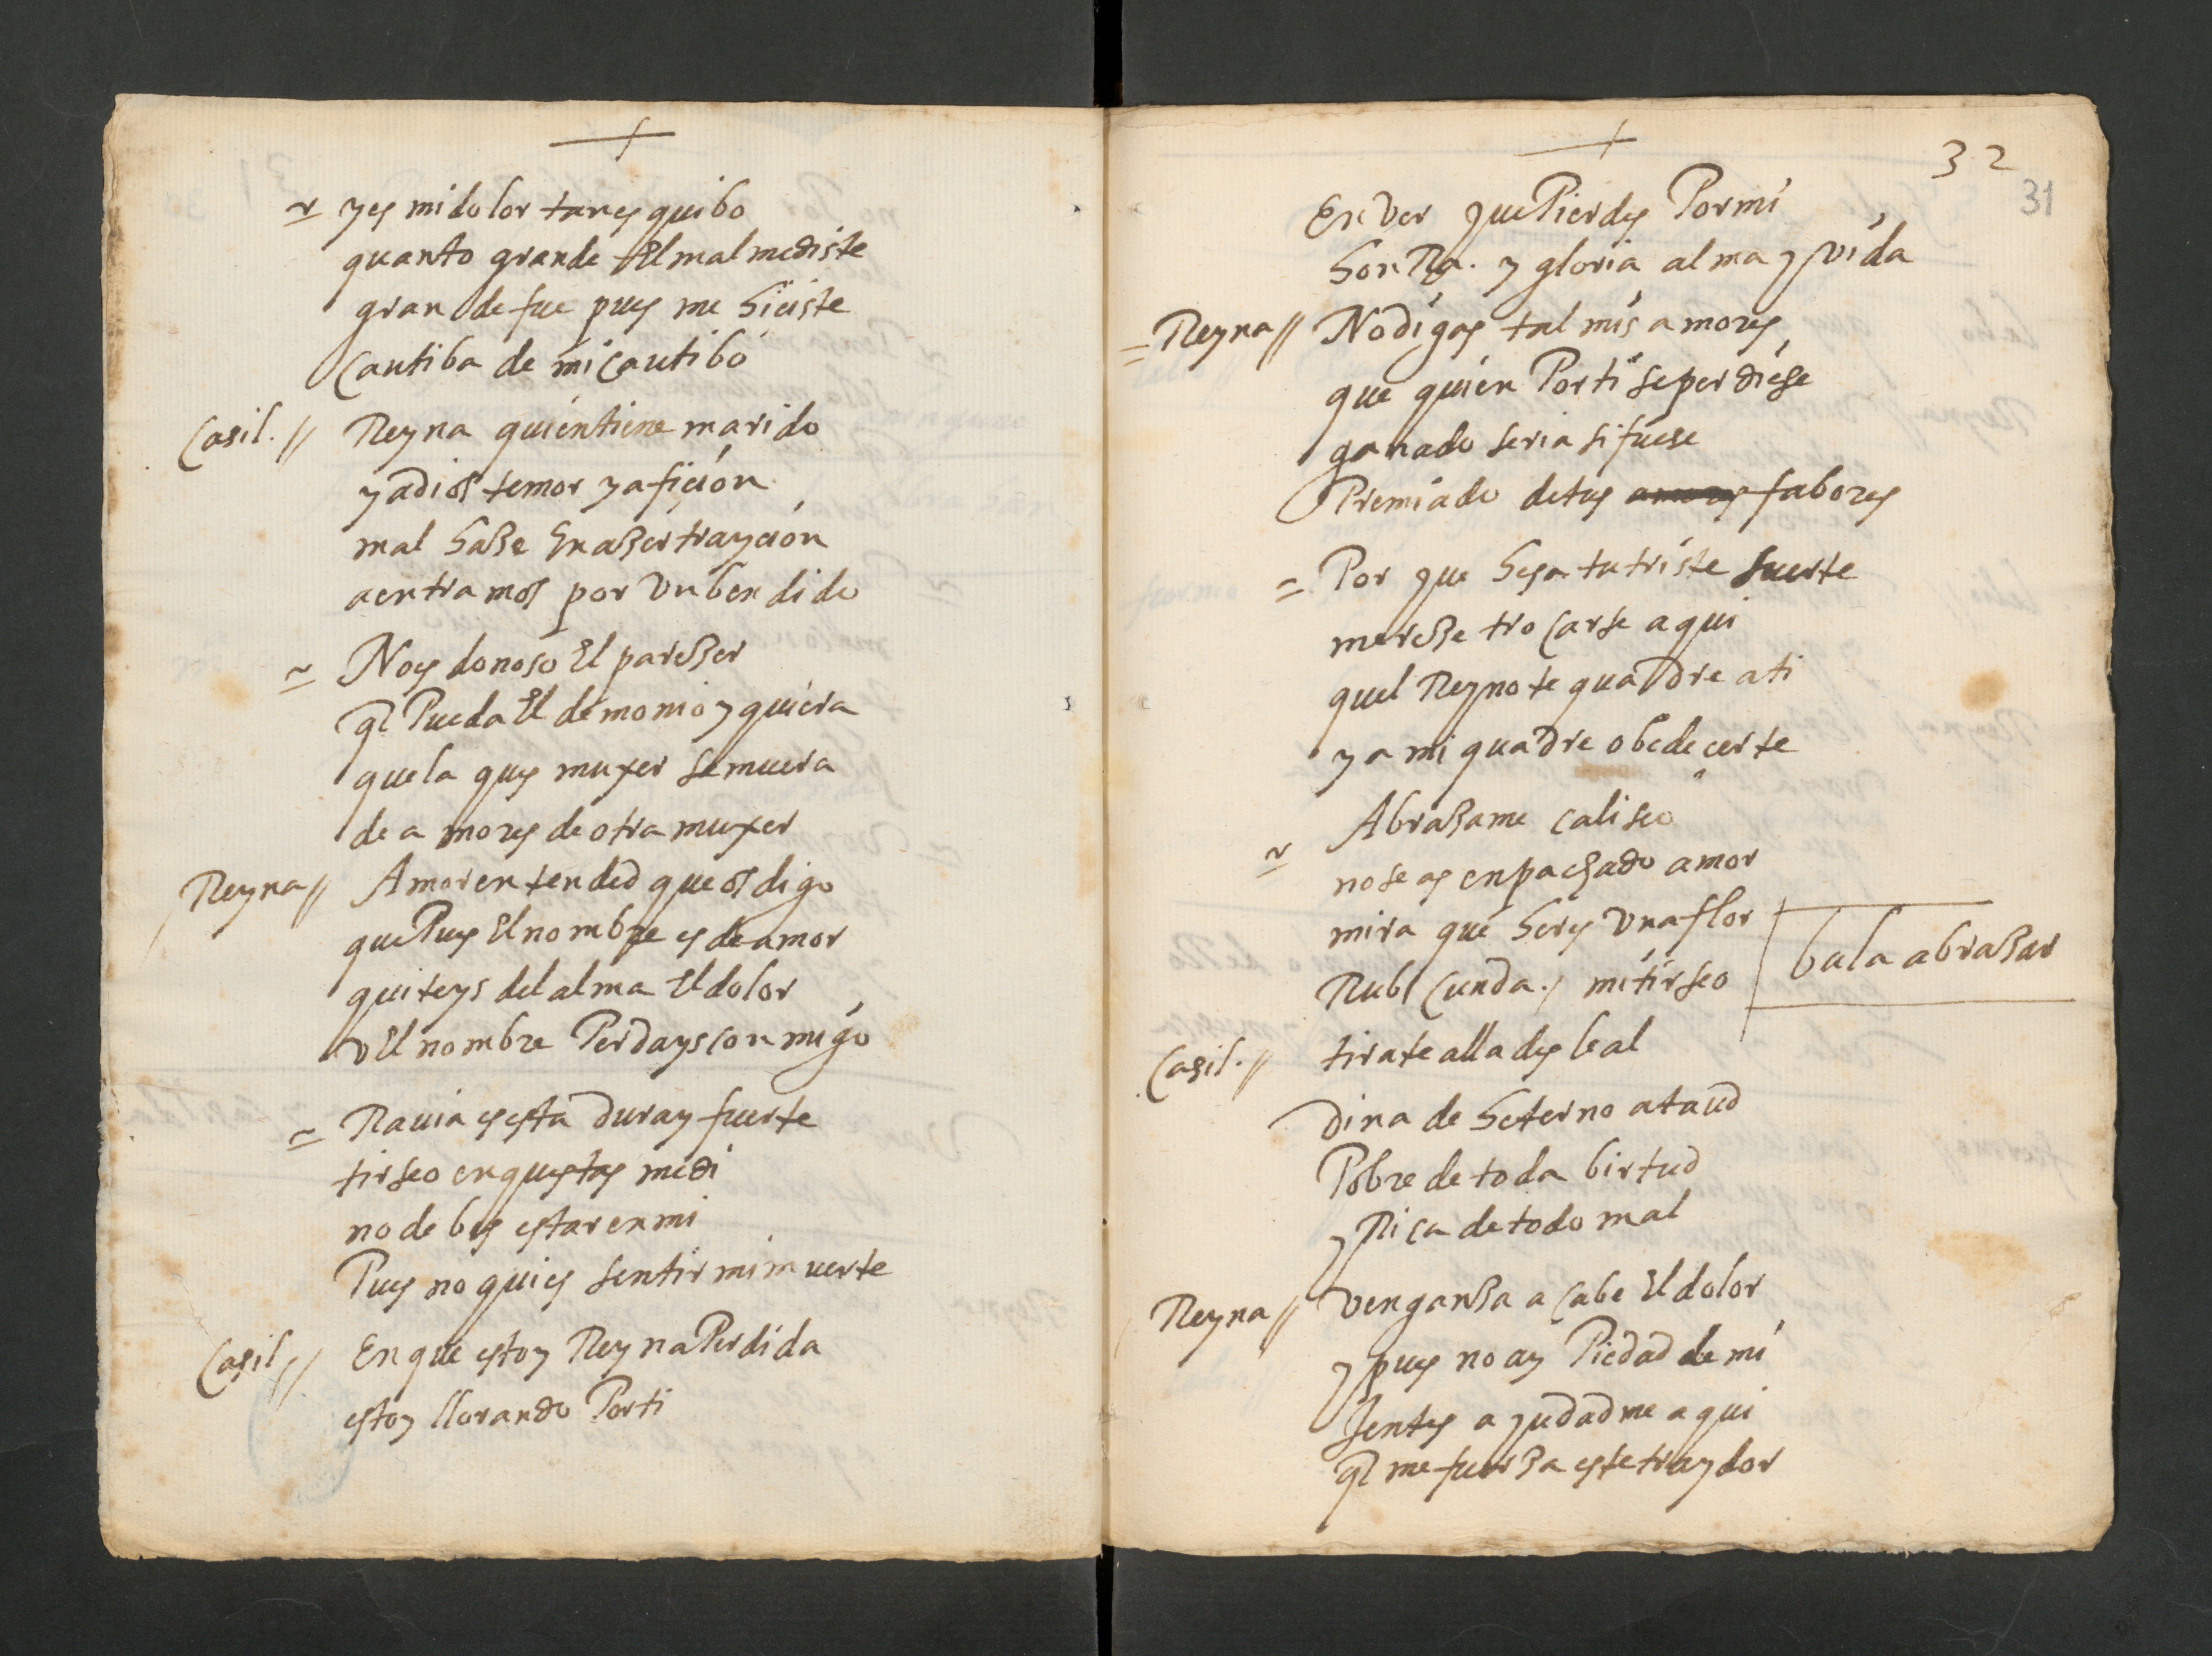 yes mi dolor tan esquibo
quanto grande El mal me diste
grande fue pues me hiciste
Cautiba de mi Cautibo
Casil. // Reyna quien tiene marido
y a dios temor y afición
mal haze En azer traycion
a entramos por un bendido
No es donoso El parezer
q̃ Pueda El demonio y quiera
que la ques muxer se muera
de amores de otra muxer
Reyna // Amor entended que os digo
que Pues El nombre es de amor
quiteys del alma El dolor
v El nombre Perdays conmigo
Rauia es esta dura y fuerte
tirseo en questas me di
no debes estar en mi
Pues no quies sentir mi muerte
Casil // En que estoy Reyna Perdida
estoy llorando Por ti
32
31
En Ver que Pierdes Por mi
honRra. y gloria alma y vida
Reyna // No digas tal mis amores
que quien Por ti se perdiese
ganado seria si fuese
Premiado de tus amores fabores
Por que heya tu triste suerte
mereze trocarse aqui
quel Reyno te quadre a ti
y a mi quadre obedecerte
Abrazame caliseo
no seas enpachado amor
mira que heres Una flor
Rubicunda. mi tirseo
bala abrazar
Casil. // tirate alla desleal
dina de heterno ataud
Pobre de toda birtud
y Rica de todo mal
Reyna // venganza acabe El dolor
y pues no ay Piedad de mi
Jentes ayudadme aqui
q̃ me fuerza este traydor